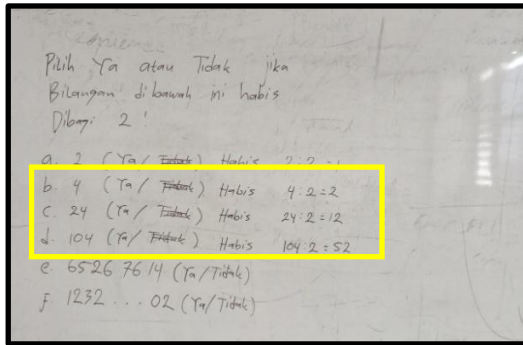 Pilih Ya atau Tidak jika
Bilangan dibawah ini habis
Dibagi 2 !
a. 2 (Ya/ Tidak) Habis 2:2=1
b. 4 (Ya/ Tidak) Habis 4:2=2
c. 24 (Ya/ Tidak) Habis 24:2=12
d. 104 (Ya/ Tidak) Habis 104:2=52
e. 6526 76 14 (Ya/Tidak)
f. 1232 . . . 02 (Ya/Tidak)